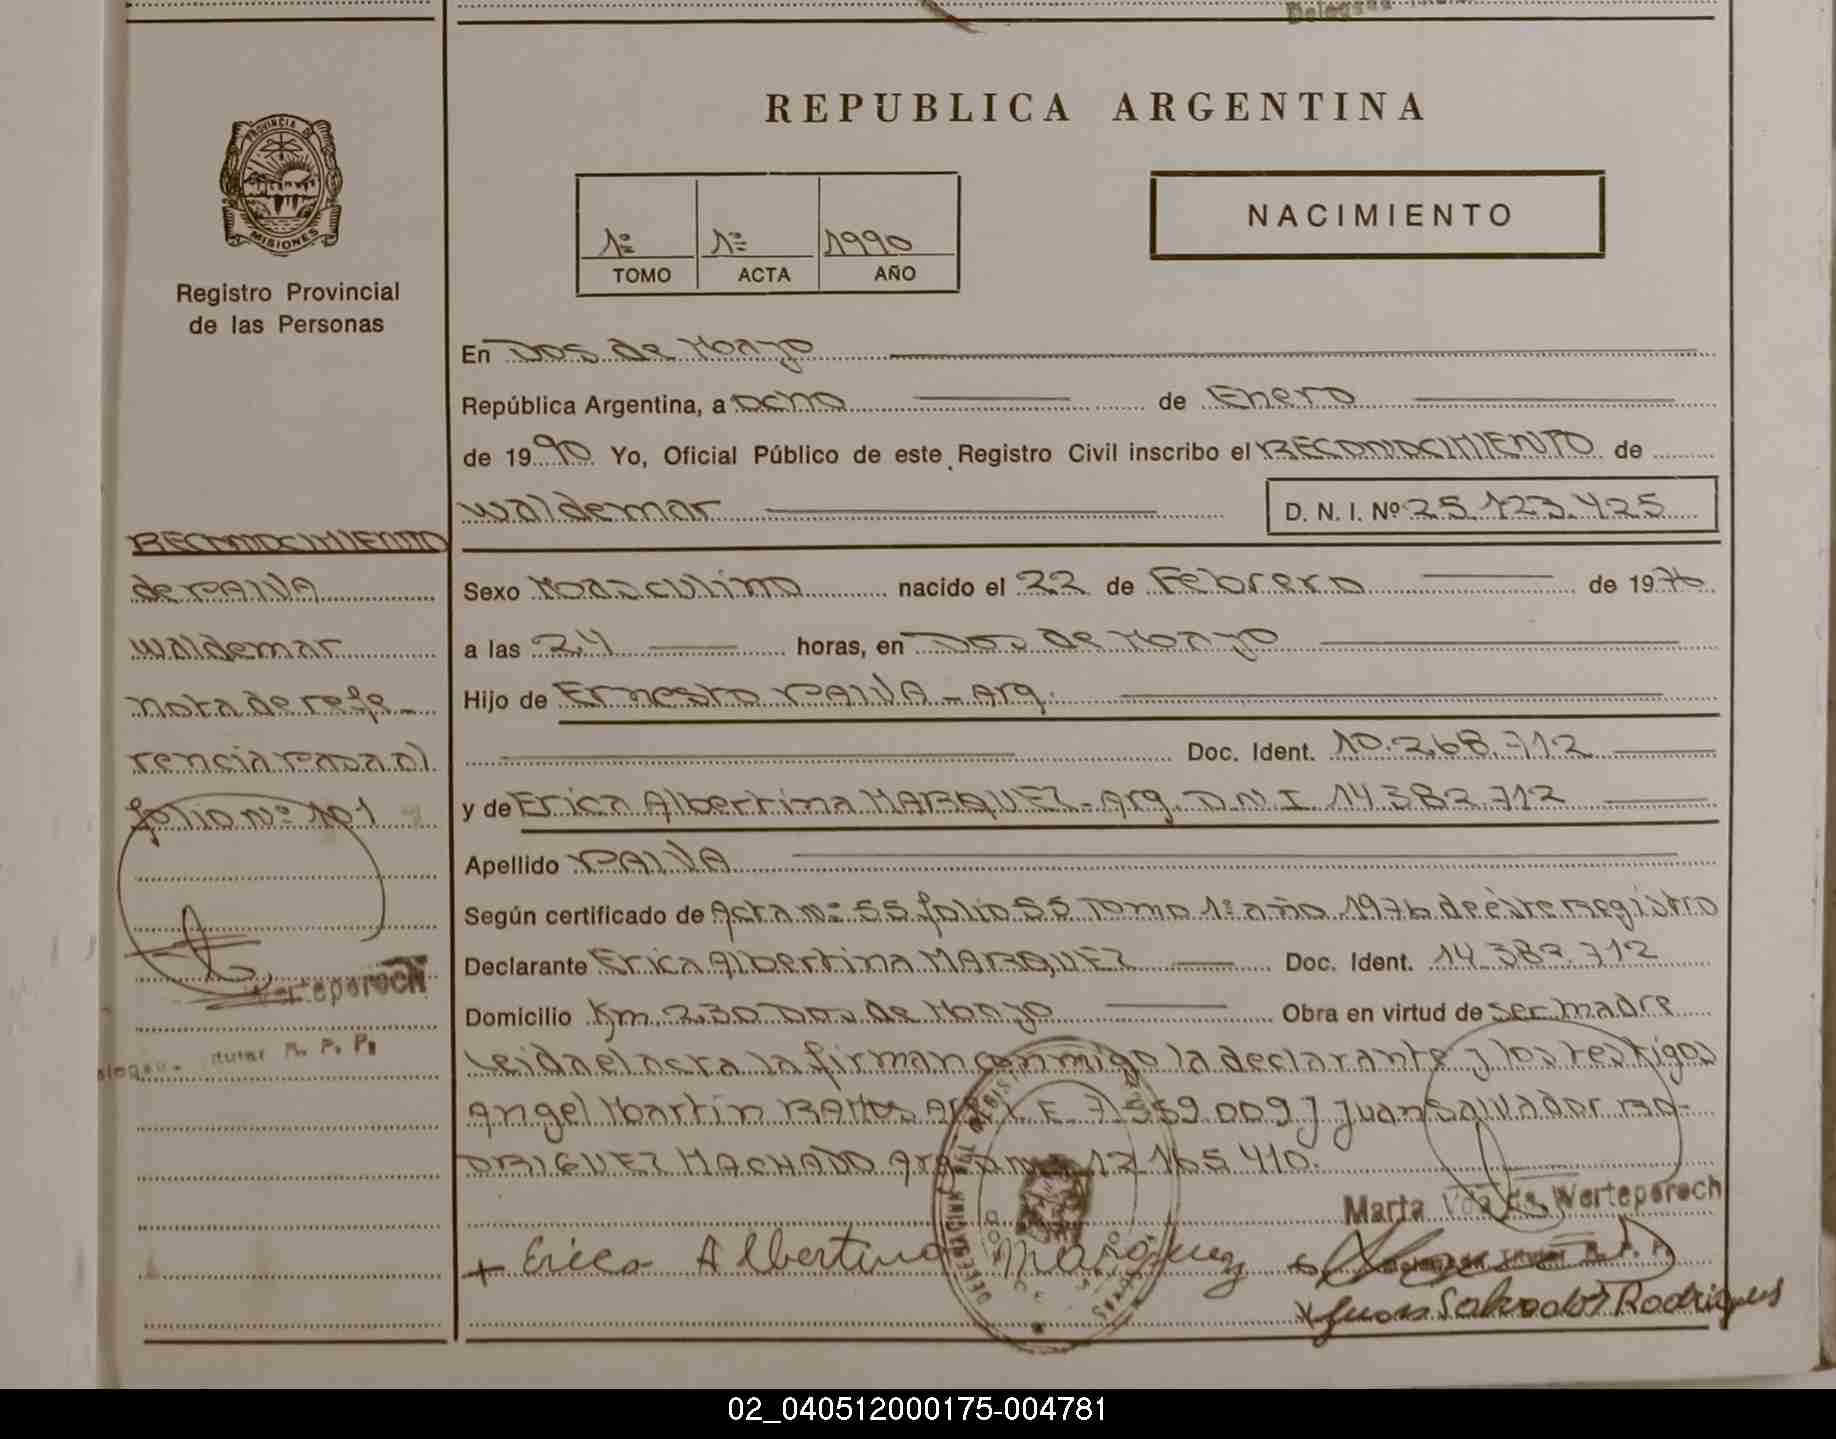 REPUBLICA ARGENTINA
PROVINCIA DE
MISIONES
Registro Provincial
de las Personas
1º 1º 1990
TOMO ACTA AÑO
NACIMIENTO
En Dos de Mayo
República Argentina, a ocho de Enero
de 1990 Yo, Oficial Público de este Registro Civil inscribo el RECONOCIMIENTO de
Waldemar D. N. I. Nº 25.123.425
Sexo Masculino nacido el 22 de Febrero de 1976
a las 24 horas, en Dos de Mayo
Hijo de Ernesto PAIVA - Arg.
Doc. Ident. 10.268.712
y de Erica Albertina MARQUEZ - Arg. D.N.I. 14.382.712
Apellido PAIVA
Según certificado de Acta Nº 55 folio 55 Tomo 1º año 1976 de éste Registro
Declarante Erica Albertina MARQUEZ Doc. Ident. 14.382.712
Domicilio Km. 230 Dos de Mayo Obra en virtud de ser madre
Leida el acta la firman conmigo la declarante y los testigos
Angel Martin Arg L.E. 7.559.009 y Juan Salvador RO-
DRIGUEZ MACHADO Arg. D.N.I. 12.165.410.
Marta Vda de Werteperoch
Delegada Titular R. P. P.
+ Erica Albertina Marquez
x Juan Salvador Rodrigues
RECONOCIMIENTO
de PAIVA
Waldemar
nota de refe-
rencia pasa al
folio Nº 101
Werteperoch
Titular R. P. P.
02_040512000175-004781